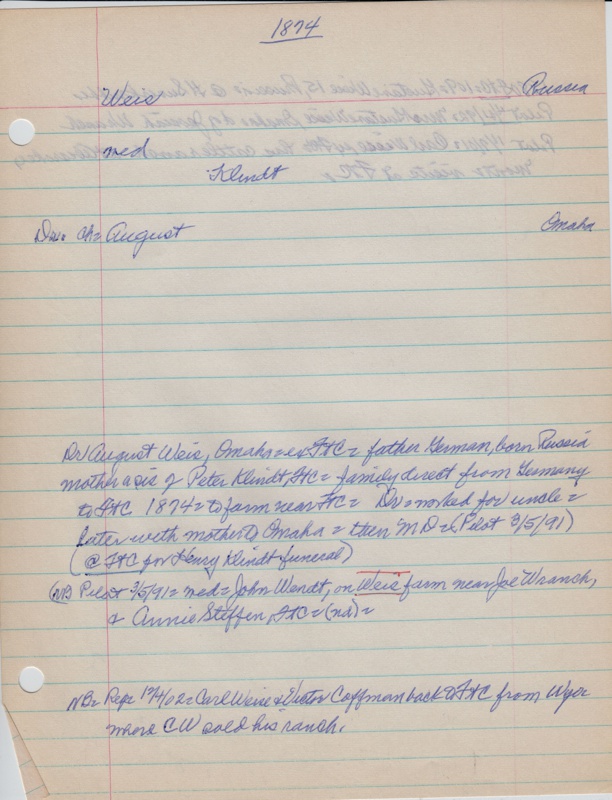 1874
Weis Russia
med
Klindt
Dr. ch= August Omaha
Dr August Weis, Omaha = ex FtC = father German, born Russia
mother a sis of Peter Klindt, FtC = family direct from Germany
to FtC 1874 = to farm near FtC = Dr = worked for uncle =
later with mother to Omaha = then MD = (Pilot 3/5/91)
(@ FtC for Henry Klindt funeral)
(NB Pilot 3/5/91 = med = John Wendt, on Weis farm near Joe Wranch,
& Annie Steffen, FtC = (nd) =
NB= Rep: 12/4/02 = Carl Weise & Victor Coffman back to FtC from Wyo
where CW sold his ranch.